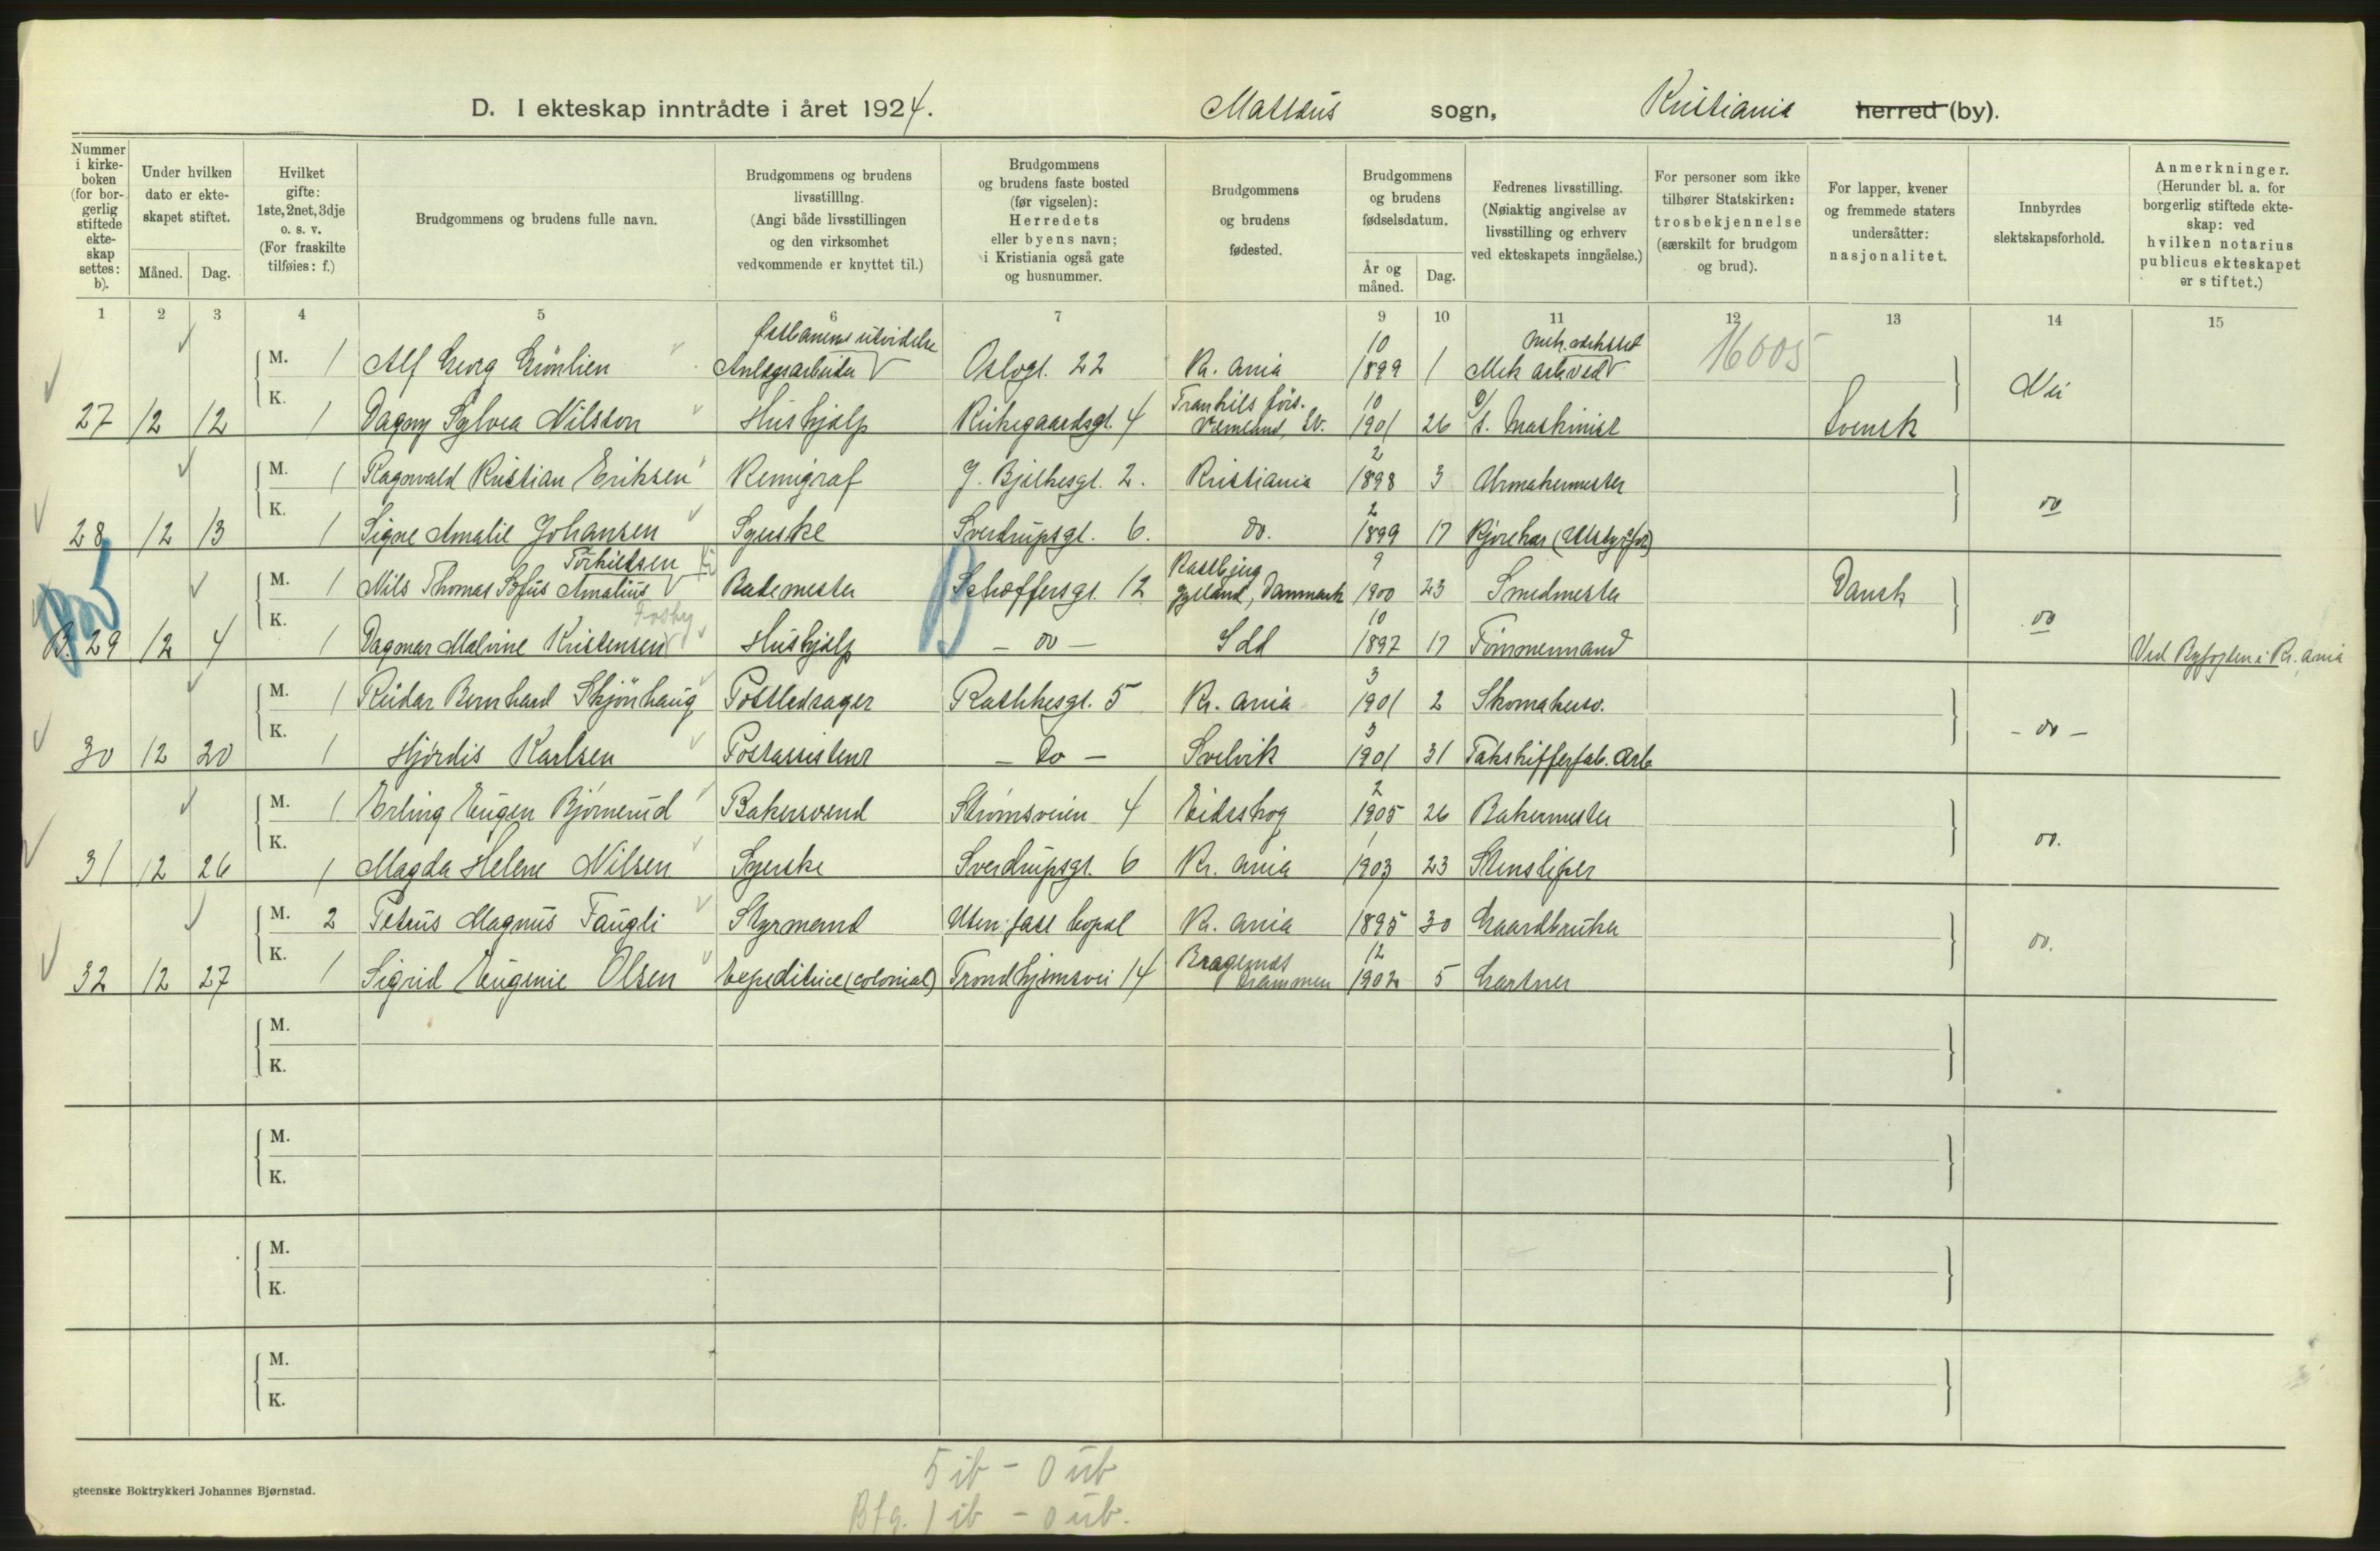 D. I ekteskap inntrådte i året 1924. Matteus sogn, Kristiania herred (by).
Nummer i kirkeboken (for borgerlig stiftede ekteskap settes: b).
Under hvilken dato er ekteskapet stiftet.
Måned. Dag.
Hvilket gifte: 1ste, 2net, 3dje o. s. v. (For fraskilte tilføies: f.)
Brudgommens og brudens fulle navn.
Brudgommens og brudens livsstilllng. (Angi både livsstillingen og den virksomhet vedkommende er knyttet til.)
Brudgommens og brudens faste bosted (før vigselen): Herredets eller byens navn; i Kristiania også gate og husnummer.
Brudgommens og brudens fødested.
Brudgommens og brudens fødselsdatum.
År og måned. Dag.
Fedrenes livsstilling. (Nøiaktig angivelse av livsstilling og erhverv ved ekteskapets inngåelse.)
For personer som ikke tilhører Statskirken: trosbekjennelse (særskilt for brudgom og brud).
For lapper, kvener og fremmede staters undersåtter: nasjonalitet.
Innbyrdes slektskapsforhold.
Anmerkninger. (Herunder bl. a. for borgerlig stiftede ekteskap: ved hvilken notarius publicus ekteskapet er stiftet.)
1 2 3 4 5 6 7 9 10 11 12 13 14 15
Østbanens utvidelse 10 Mek. verksted 16005
M. 1 Alf Georg Grönlien Anlegsarbeider Oslogt. 22 Kr. ania 1899 1 Mek arb ved Nei
Frankils förs. 10
27 12 12 K. 1 Dagny Sylvia Nilsson Hushjælp Kirkegaardsgt. 4 Vermland, Sv. 1901 26 S. Maskinist Svensk
2
M. 1 Ragnvald Kristian Eriksen Kemigraf J. Bjelkesgt. 2. Kristiania 1898 3 Uhrmakermester do
2
28 12 13 K. 1 Signe Amalie Johansen Syerske Sverdrupsgt. 6. do. 1899 17 Kjørekar
Torkildsen 9
M. 1 Nils Thomas Sofus Amalius Bademester B Schæffersgt. 12 Jylland, Danmark 1900 23 Smedmester Dansk do
Fosby 10
B. 29 12 4 K. 1 Dagmar Malvine Kristensen Hushjælp – do – 1897 17 Tömmermand Ved Byfogden i Kr. ania
3
M. 1 Reidar Bernhard Skjönhaug Postledsager Rathkesgt. 5 Kr. ania 1901 2 Skomakersv. – do –
3
30 12 20 K. 1 Hjördis Karlsen Postassistent – do – Svelvik 1901 31 Takskifferfab. Arb
2
M. 1 Erling Eugen Bjørnerud Bakersvend Strömsveien 4 Eidskog 1905 26 Bakermester do.
1
31 12 26 K. 1 Magda Helene Nilsen Syerske Sverdrupsgt. 6 Kr. ania 1903 23 Stensliper
M. 2 Petrus Magnus Faugli Styrmand Uten fast bopæl Kr. ania 1895 30 Gaardbruker do.
Bragernes 12
32 12 27 K. 1 Sigrid Eugenie Olsen Expeditrice (colonial) Trondhjemsvei 14 Drammen 1902 5 Gartner
M.
K.
M.
K.
M.
K.
M.
K.
gteenske Boktrykkeri Johannes Bjørnstad.
5 ib – 0 ub
Bfg. 1 ib – 0 ub.